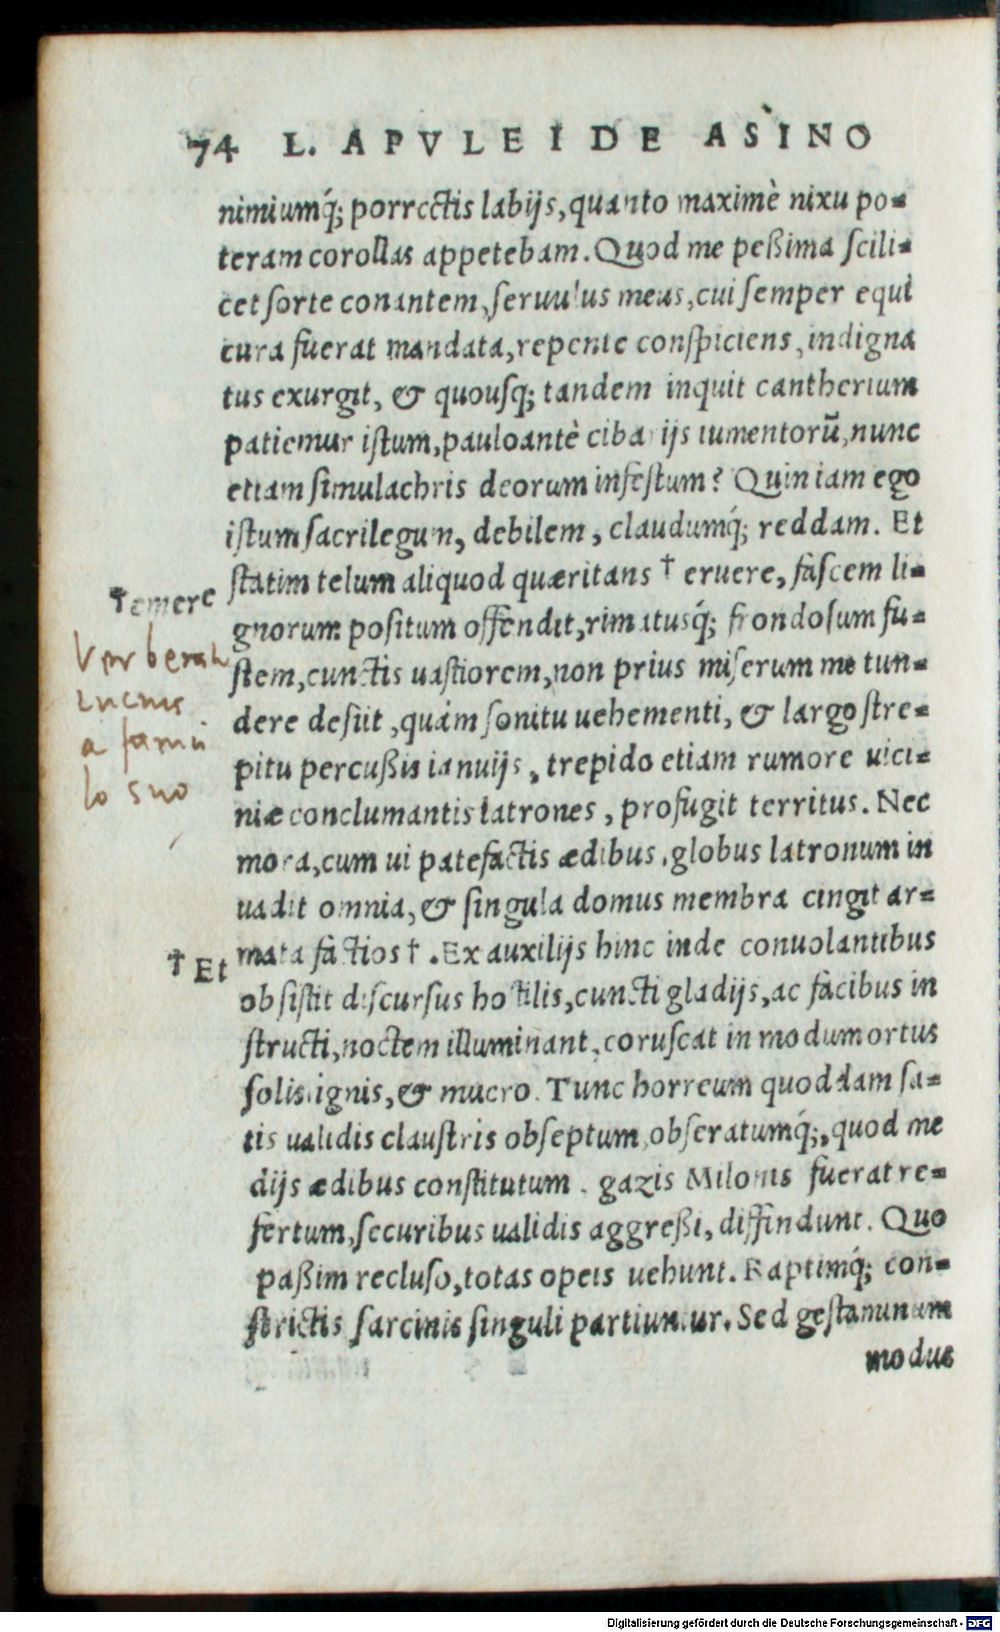 74 L. APVLEI DE ASINO
nimiumq́; porrectis labijs, quanto maximè nixu po-
teram corollas appetebam. Quod me peßima ſcili-
cet ſorte conantem, ſeruulus meus, cui ſemper equi
cura fuerat mandata, repente conſpiciens, indigna
tus exurgit, & quouſq; tandem inquit cantherium
patiemur iſtum, pauloantè cibarijs iumentorũ, nunc
etiam ſimulachris deorum infeſtum? Quin iam ego
iſtum ſacrilegum, debilem, claudumq́; reddam. Et
ſtatim telum aliquod quæritans † eruere, faſcem li-
†emere
gnorum poſitum offendit, rimatusq́; frondoſum fu-
ſtem, cunctis uaſtiorem, non prius miſerum me tun-
dere deſijt, quàm ſonitu uehementi, & largo ſtre-
pitu percußis ianuijs, trepido etiam rumore uici-
niæ conclumantis latrones, profugit territus. Nec
mora, cum ui patefactis ædibus, globus latronum in
uadit omnia, & ſingula domus membra cingit ar-
mata factios †. Ex auxilijs hinc inde conuolantibus
† Et
obſiſtit diſcurſus hoſtilis, cuncti gladijs, ac facibus in
ſtructi, noctem illuminant, coruſcat in modum ortus
ſolis ignis, & mucro. Tunc horreum quoddam ſa-
tis ualidis clauſtris obſeptum, obſeratumq́;, quod me
dijs ædibus conſtitutum. gazis Milonis fuerat re-
fertum, ſecuribus ualidis aggreßi, diffindunt. Quo
paßim recluſo, totas opeis uehunt. Raptimq́; con-
ſtrictis ſarcinis ſinguli partiuntur. Sed geſtaminum
modus
Verberat
Lucius
a famu
lo suo
Digitalisierung gefördert durch die Deutsche Forschungsgemeinschaft - DFG